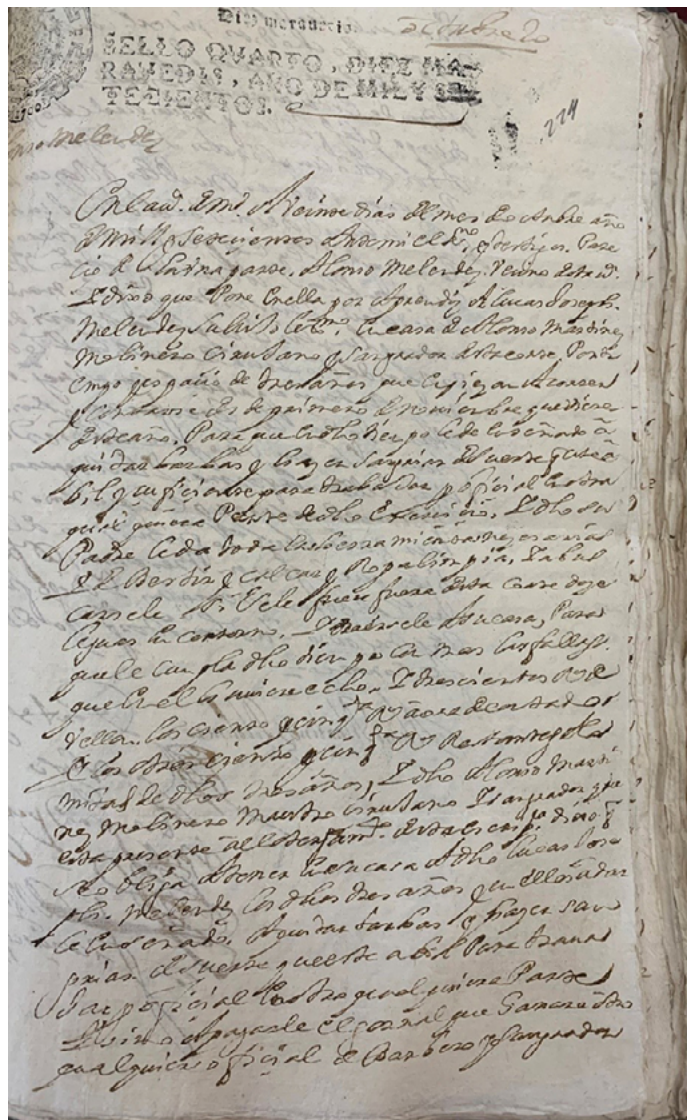 Diez maravedis
octubre 20
SELLO QVARTO, DIEZ MA-
RAVEDIS, AÑO DE MIL Y SE
TECIENTOS.
224
Melendez
En la v.ª de m.d A Veinte dias del mes de octubre año
de mill y setecientos Ante mi el s.no y testigos Pare
cio de la una parte, Alonso Melendez, Vecino desta v.ª
Y dixo que Pone en ella por Aprendiz A Lucas Joseph
Melendez su hijo lex.mo en casa de Alonso Martinez
Molinero cirujano y sangrador desta corte, Por
tiempo y espacio de tres años que empiezan a correr
y contarse desde primero de noviembre que viene
deste año, Para que en dho tiempo le de enseñado a
quitar barbas y hazer sangrias de suerte que este a
bil y suficiente para trabajar por oficial en otra
qualquiera Parte de dho exercicio, Y dho su
Padre le a de dar toda la herramienta necesaria
Y de Bestir y calcar y Ropa limpia, Y a bus
carsele si se le fuere fuera desta corte doze
leguas en contorno, Y traersele a su casa, Para
que le cumpla dho tiempo con mas las fallas
que en el lo uviere echo, Y trescientos R.s de
Vellon los ciento y cinq.ta R.s aora de contado
Y los otros ciento y cinq.ta R.s Restantes a la
mitad de dhos tres años, Y dho Alonso Marti
nez Molinero Maestro cirujano Y sangrador que
esta presente al otorgam.to desta escrip.ra dixo q
se obliga A tener en su casa A dho Lucas Jose
ph. Melendez los dhos tres años y en ellos a dar
le enseñado A quitar barbas y hazer san
grias de suerte que este abil Para traba
jar por oficial en otra qualquiera Parte
Y sino A pagarle el jornal que Ganare otro
qualquiera oficial de Barbero y sangrador